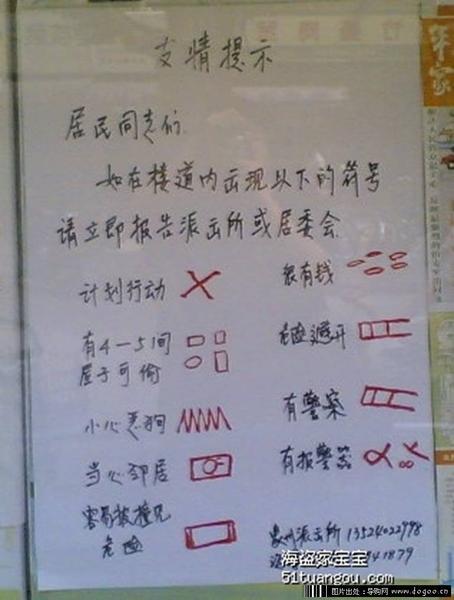 友情提示
居民同志们
如在楼道内出现以下的符号
请立即报告派出所或居委会
计划行动
很有钱
有4-5间
屋子可偷
危险避开
小心恶狗
有警察
当心邻居
有报警器
容易被撞见
危险
派出所 13524022998
1879
海盗家宝宝
51tuangou.com
图片出处:导购网 www.dogoo.cn
军家